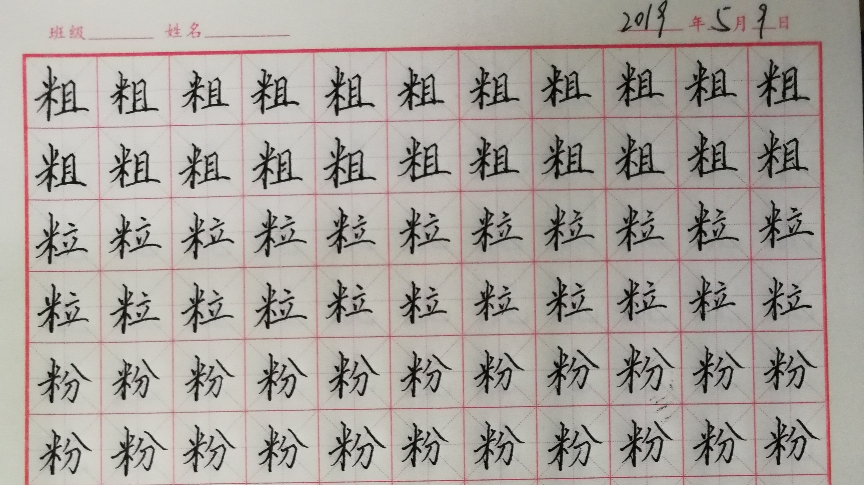 班级 姓名 2019年5月9日
粗粗粗粗粗粗粗粗粗粗粗
粗粗粗粗粗粗粗粗粗粗粗
粒粒粒粒粒粒粒粒粒粒粒
粒粒粒粒粒粒粒粒粒粒粒
粉粉粉粉粉粉粉粉粉粉粉
粉粉粉粉粉粉粉粉粉粉粉